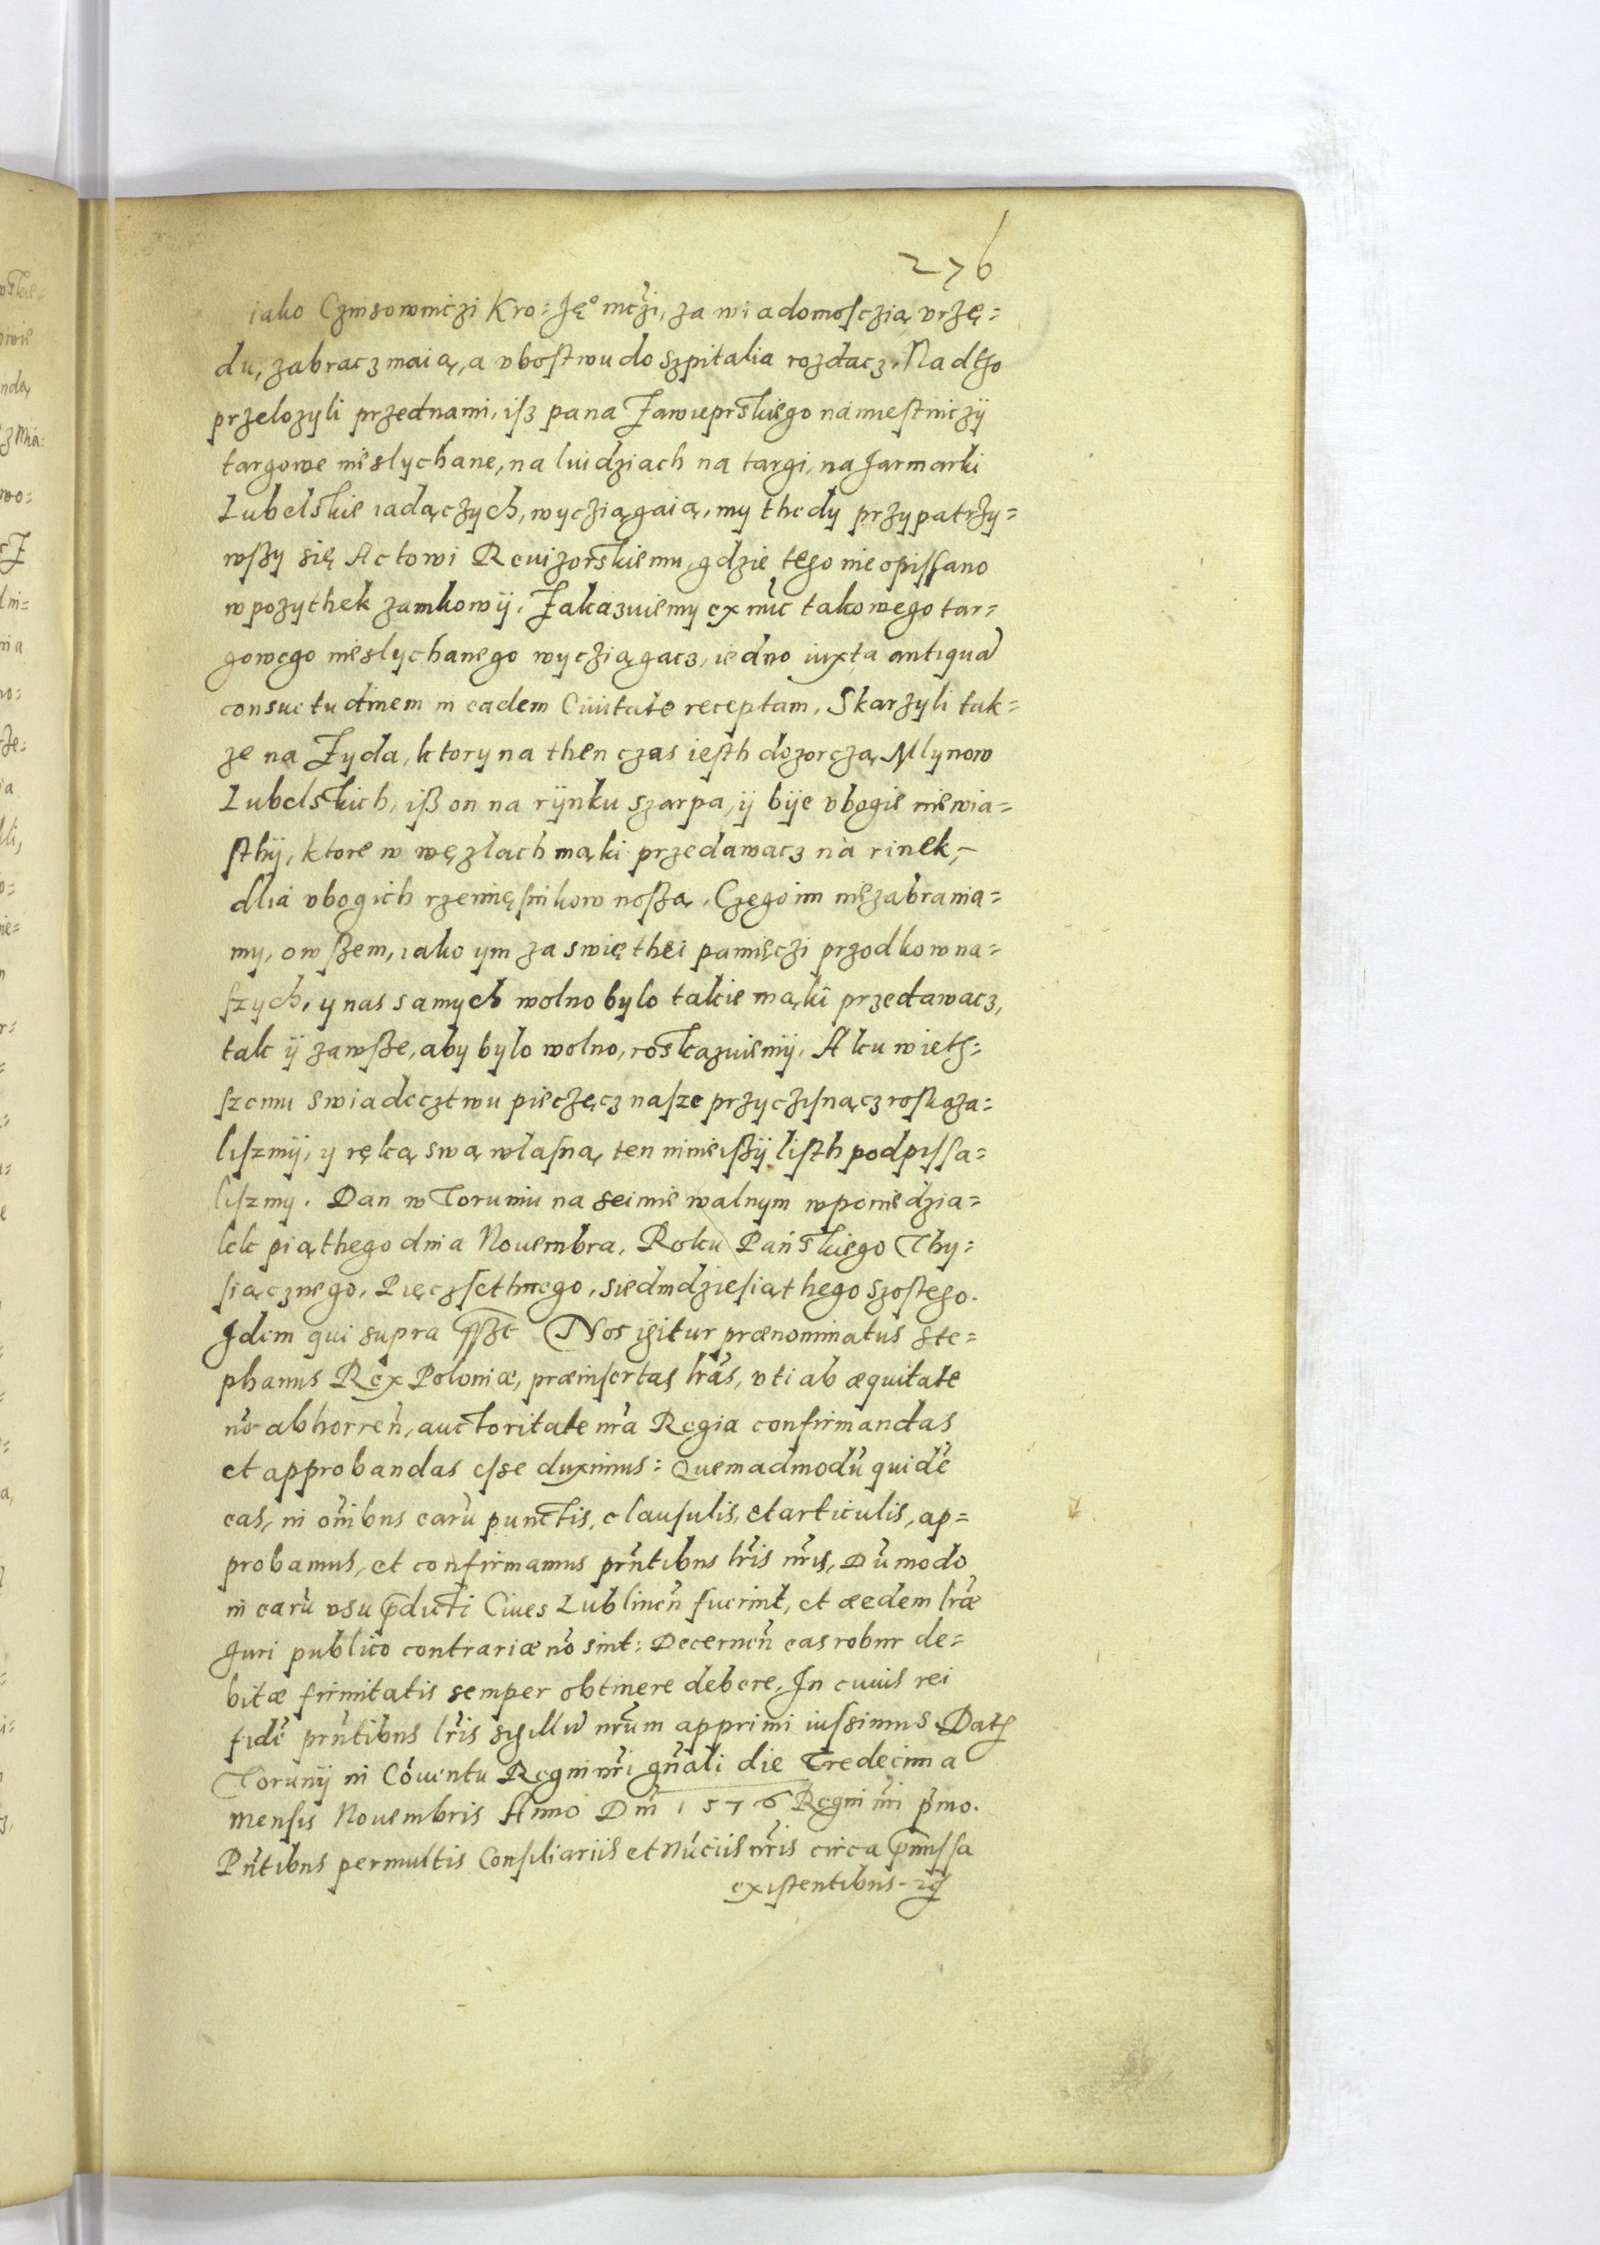 276
iako Czinsowniczi Kro: Je° mczi, za wiadomosczią vrzę=
du, zabracz maią, a vbostwu do szpitalia rozdacz. Nadtho
przelozyli przed nami, isz pana Zawieprskiego namiestniczÿ
targowe nieslychane, na luidziach na targi, na Jarmarki
Lubelskie iadączych, wycziągaią, my thedy przypatrzy=
wszy się Actowi Reuizorskiemu, gdzie tego nie opissano
w pozythek zamkowÿ. Zakazuiemy ex nuc takowego tar=
gowego nieslychanego wycziągacz, iedno iuxta antiqua
consuetudinem in eadem Ciuitate receptam. Skarzyli tak=
ze na Zyda, ktory na then czas iesth dozorczą Mlynow
Lubelskich, iß on na rÿnku szarpa, ÿ bije vbogie niewia=
sthÿ, ktore w węzlach mąki przedawacz na rinek,
dlia vbogich rzemięsnikow noszą. Czego im niezabrania=
my, owszem, iako ym za swięthei pamięczi przodkow na=
szych, y nas samych wolno bylo takie mąki przedawacz,
tak ÿ zawsze, aby bylo wolno, roskazuiemÿ. A ku wieth=
szemu swiadecztwu pieczęcz nasze przyczisnącz roskaza=
liszmÿ, y ręką swą własną ten ninieiszÿ listh podpissa=
liszmy. Dan w Toruniu na seimie walnym w poniedzia=
lek piąthego dnia Nouembra, Roku Pańskiego Thy=
siącznego, Pięczsethnego, siedmdziesiąthego szostego.
Idem qui supra sszt Nos igitur prænominatus Ste=
phanus Rex Poloniæ, præinsertas lras, vti ab æquitate
no abhorren, auctoritate nra Regia confirmandas
et approbandas esse duximus: Quemadmodu quide
eas, in oibus earu punctis, clausulis, et articulis, ap=
probamus, et confirmamus prntibus lris nris, Dumodo
in earu vsu pdicti Ciues Lublinen fuerint, et eædem lræ
Iuri publico contrariæ no sint: Decernen eas robur de=
bitæ firmitatis semper obtinere debere. In cuius rei
fide prntibus lris sigillu nrum apprimi iussimus. Dat
Torunÿ in Couentu Regni nri gnali die Tredecima
mensis Nouembris Anno Dni 1576 Regni nri pmo.
Pntibus permultis Consiliariis et Nuciis nris circa pmissa
existentibus.